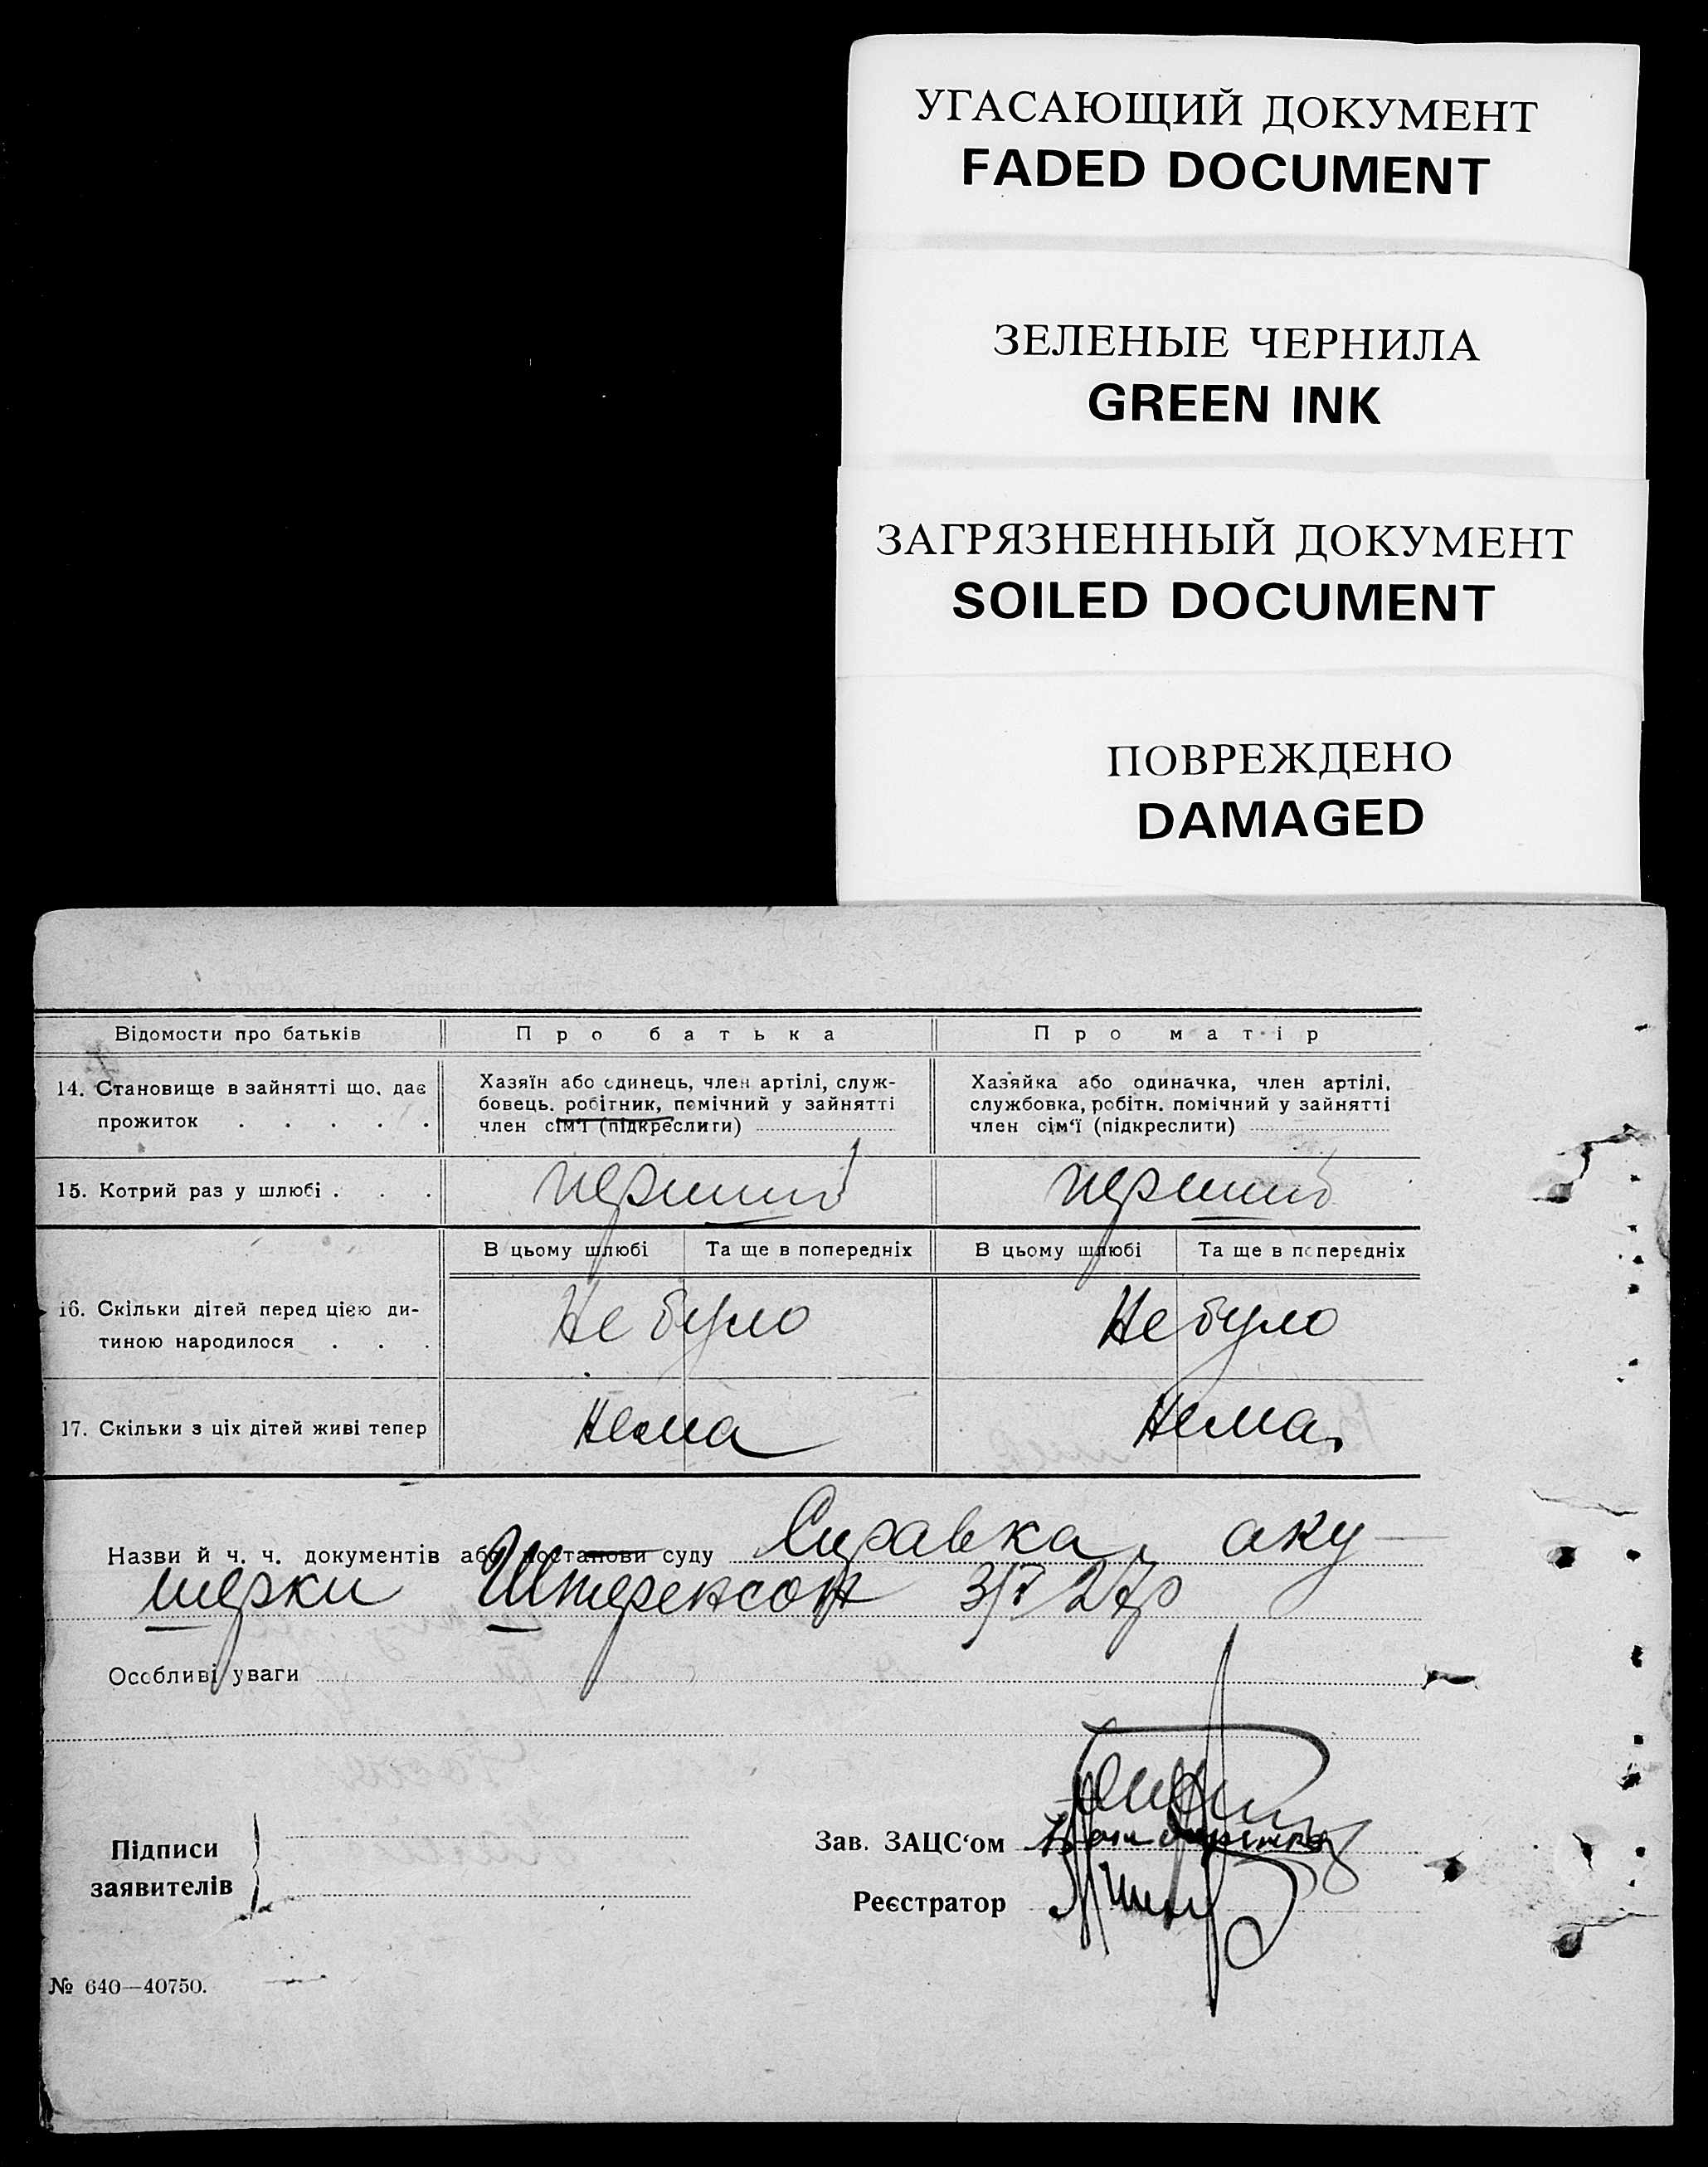 УГАСАЮЩИЙ ДОКУМЕНТ
FADED DOCUMENT
ЗЕЛЕНЫЕ ЧЕРНИЛА
GREEN INK
ЗАГРЯЗНЕННЫЙ ДОКУМЕНТ
SOILED DOCUMENT
ПОВРЕЖДЕНО
DAMAGED
Відомости про батьків Про батька Про матір
14. Становище в зайнятті що, дає
прожиток . . . . .
Хазяїн або єдинець, член артілі, служ-
бовець. робітник, помічний у зайнятті
член сім‘ї (підкреслити)
Хазяйка або одиначка, член артілі,
службовка, робітн. помічний у зайнятті
член сім‘ї (підкреслити)
15. Котрий раз у шлюбі . . . перший перший
В цьому шлюбі Та ще в попередніх В цьому шлюбі Та ще в попередніх
16. Скільки дітей перед цією ди-
тиною народилося . . .
Не було Не було
17. Скільки з ціх дітей живі тепер Нема Нема.
Назви й ч. ч. документів або постанови суду Справка аку-
шерки Штеренсон 3/V 27р
Особливі уваги
Підписи
заявителів
Зав. ЗАЦС‘ом
Реєстратор
№ 640—40750.